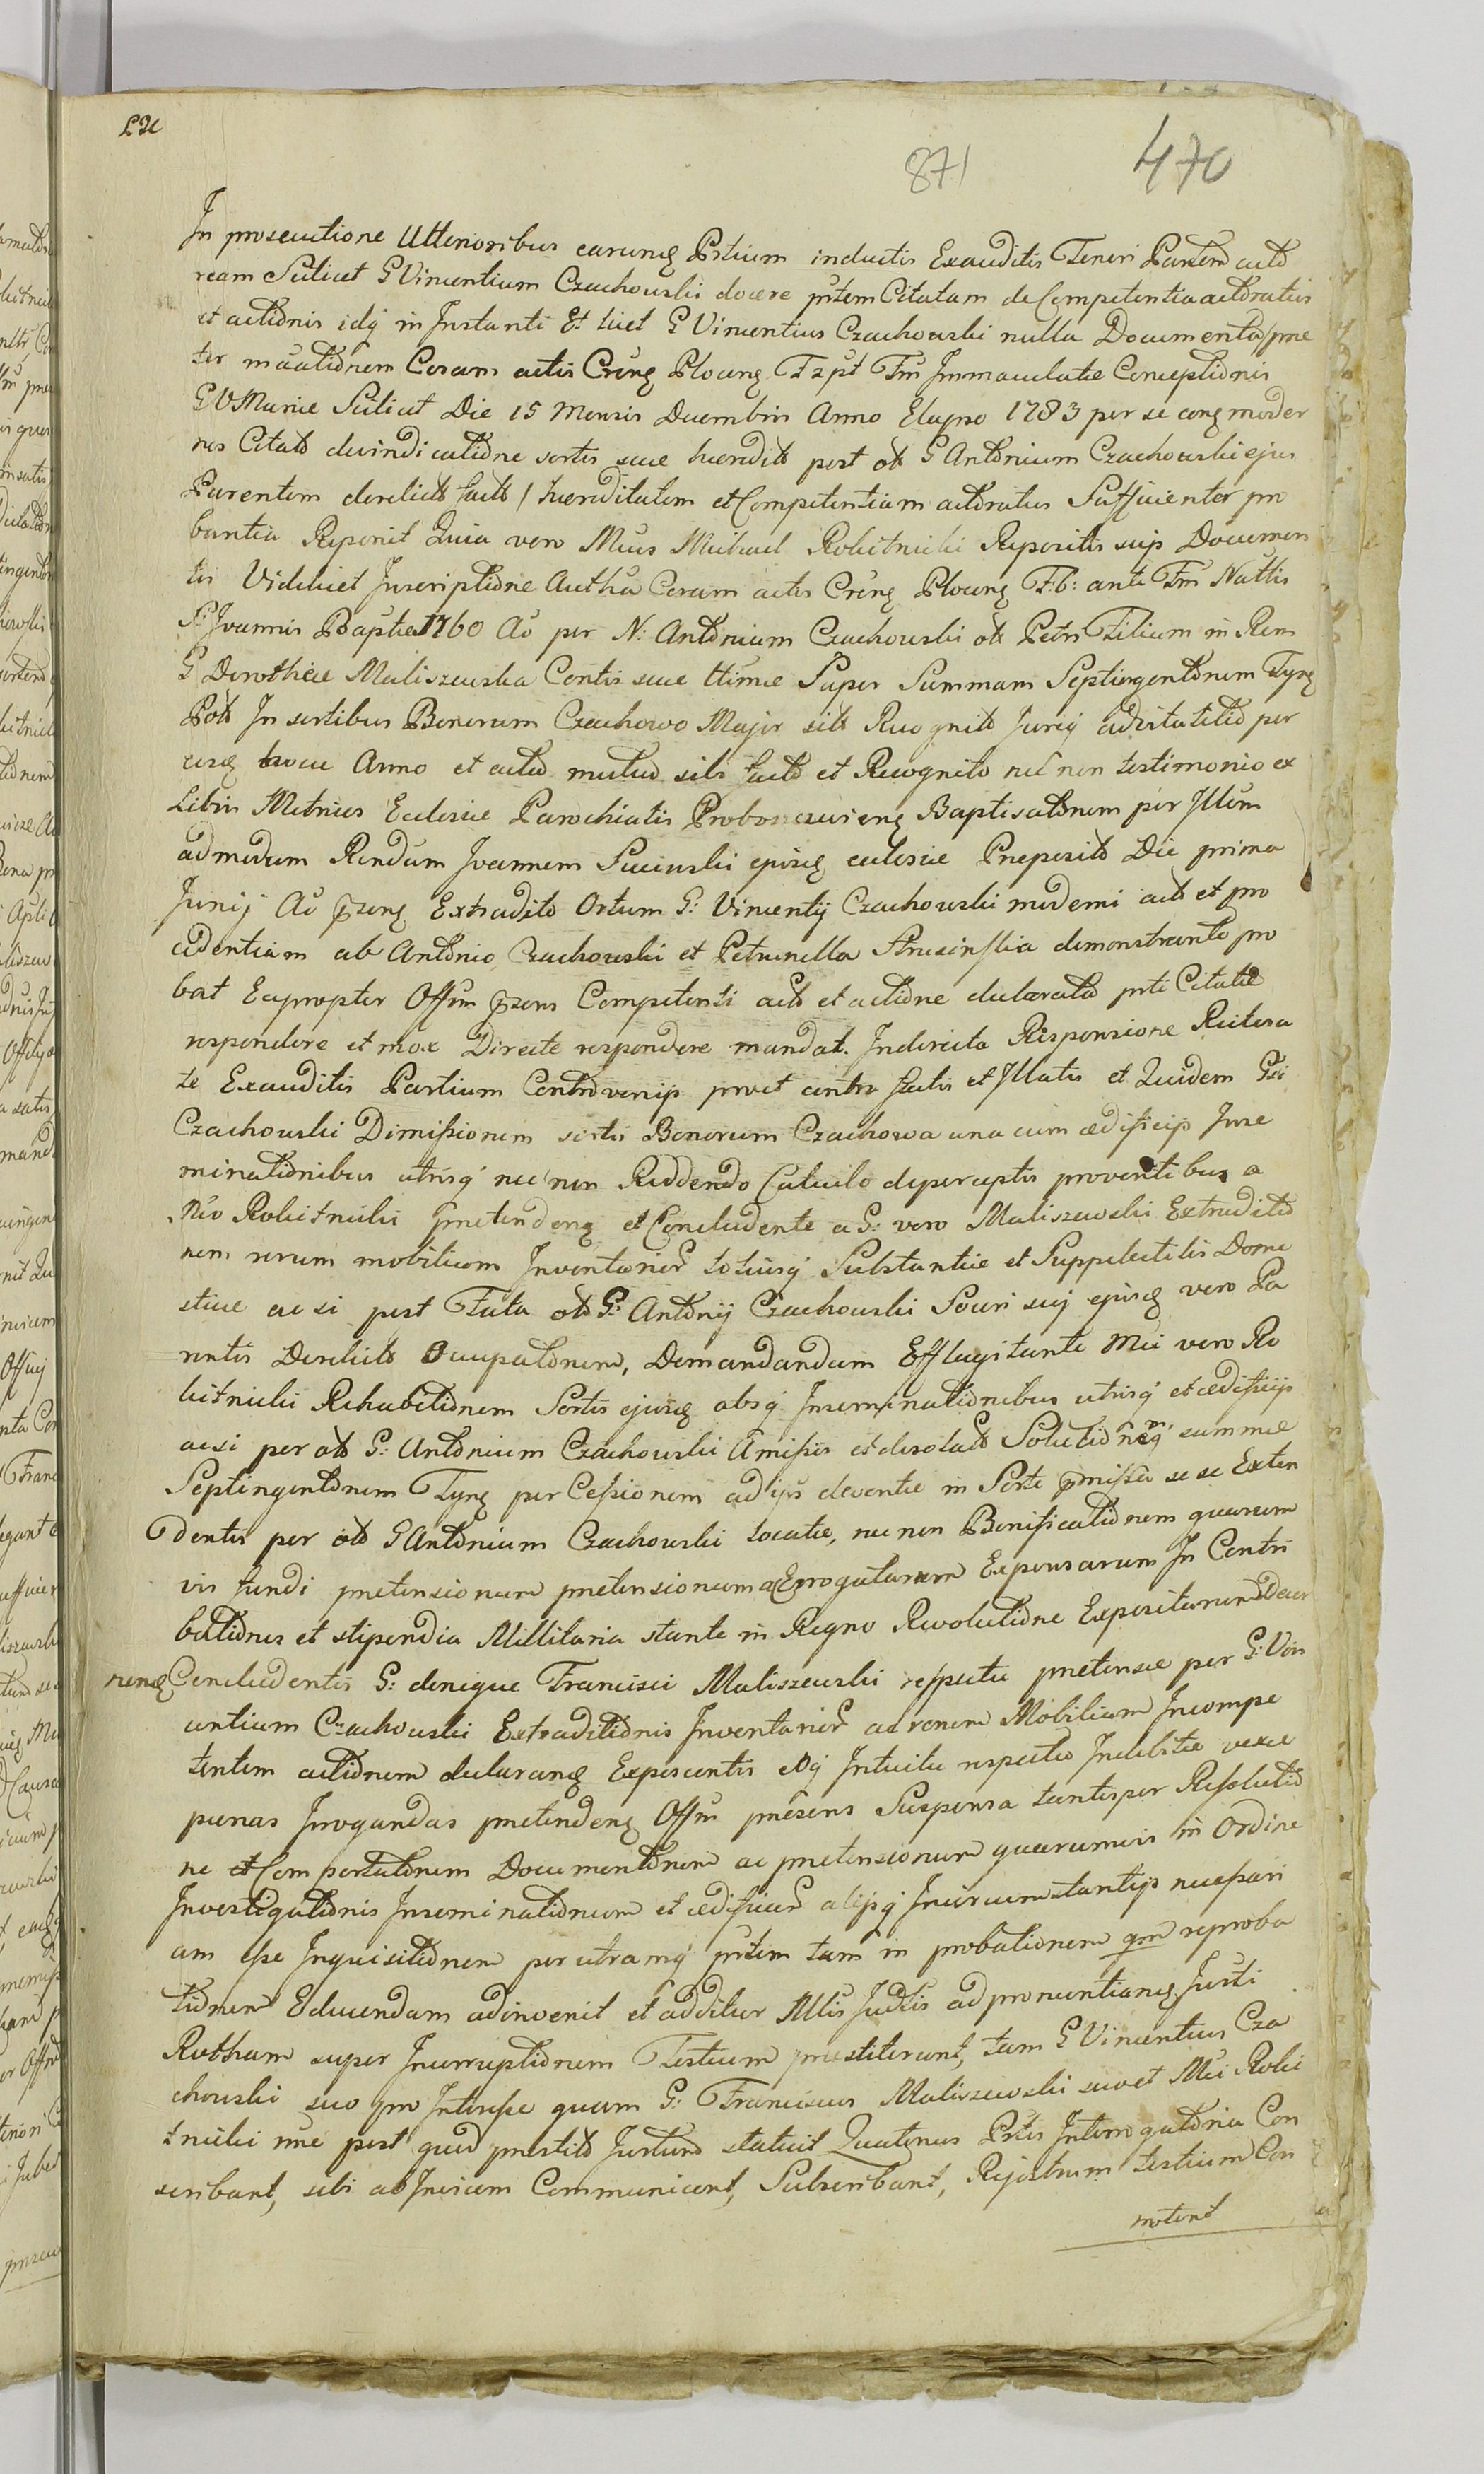 871 470
In prosecutione Ulterioribus earunq Prtium inductis Exauditis Teneri Partem acto
ream Scilicet G Vincentium Czachowski docere prtem Citatam de Competentia actoratus
et actionis idq in Instanti Et licet G Vincentius Czachowski nulla Documenta /prae
ter Coram actis Crenq Plocenq Fm Immaculatae Conceptionis
GVMariae Scilicet Die 15 Mensis Decembris Anno Elapso 1783 per se conq moder
nos Citatos devindicatione sortis suae haeredit post ol G Antonium Czachowski ejus
Parentem derelicto facto / haereditatem et Competentiam actoratus Sufficienter pro
bantia Reponit Quia vero Mcus Michael Rokitnicki Repositis suis Documen
tis Videlicet Inscriptione Autha Coram actis Crenq Plocenq F: 6: ante Fm Nattis
S: Joannis Baptae 1760 Ao per N: Antonium Czachowski ol Petri Filium in Rem
G Dorotheae Maliszewska Contis suae ttimae Super Summam Septingentorum Tynq
Pol In sortibus Bonorum Czachowo Major sitt Recognito Juriq advitalitio per
eosq hocce Anno et actu mutuo sibi facto et Recognito nec non testimonio ex
Libris Metrices Ecclesiae Parochialis Proboszczewienq Baptisatorum per Illum
admodum Rendum Joannem Sucinski ejusq ecclesiae Praeposito Die prima
Junij Ao przenq Extradito Ortum G: Vincentij Czachowski moderni acto et pro
cedentiam ab Antonio Czachowski et Petronella demonstrante pro
bat Eapropter Offm przens Competenti acto et actione declarata prti Citatae
respondere et mox Directe respondere mandat. Indirecta Responsione Reitera
te Exauditis Partium Controversijs prout contro et Illatis et Quidem Gsi
Czachowski Dimissionem sortis Bonorum Czachowa una cum aedificijs Inse
minationibus utrisq nec non Reddendo Calculo de perceptis proventibus a
Mco Rokitnicki praetendenq et Concludente a G: vero Maliszewski Extraditio
nem rerum mobilium Inventarior totiusq Substantiae et Suppelectilis Dome
sticae ac si post Fata ol G: Antonij Czachowski Soceri sui ejusq vero Pa
rentis Derelicto Occupatorum, Demandandam Efflagitante Mci vero Ro
kitnicki Rehabitionem Sortis ejusq absq Inseminationibus utrisq et aedificijs
acsi per ol G: Antonium Czachowski Amissis et desolatis Solutionemq summae
Septingentorum Tynq per Cessionem ad ipso deventae in Sorte praemissa se se Exten
dentis per ol G Antonium Czachowski locatae, nec non Bonificationem quarum
vis fundi praetensionum praetensionum a Errogatarum Expensarum In Contri
butiones et stipendia Millitaria stante in Regno Revolutione Expositarum Decer
nenq Concludentis G: denique Francisci Maliszewski respectu praetensae per G: Vin
centium Czachowski Extraditionis Inventarior ac rerum Mobilium Incompe
tentem actionem declaranq Exposcentis eoq Intuitu respectu Indebitae vexae
paenas Irrogandas praetendenq Offm praesens Suspensa tantisper Resolutio
ne et Comportatorum Documentorum ac praetensionum quarumvis in Ordine
Investigationis Inseminationum et aedificior alijsq Incircumstantijs necessari
am esse Inquisitionem per utramq prtem tam in probationem qm reproba
tionem Educendam adinvenit et additur Illis Judtis ad pronuntianq Justi
Rotham super Incorruptionem Testium praestiterunt, tam G Vincentius Cza
chowski suo pro Interesse quam G: Franciscus Maliszewski suo et Mci Roki
tnicki nne post quod praestito Jurto statuit Quatenus Prtes Interrogatoria Con
scribant, sibi ad Invicem Communicent, Subscribant, Rejestrum testium Con
notent